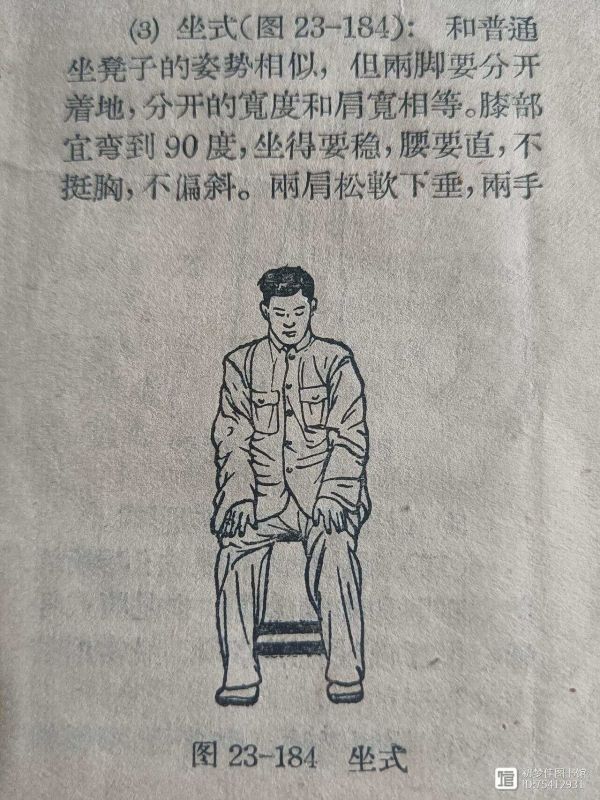 (3) 坐式(图 23-184)： 和普通
坐凳子的姿势相似，但兩脚要分开
着地，分开的寬度和肩寬相等。膝部
宜弯到 90 度，坐得要稳，腰要直，不
挺胸，不偏斜。兩肩松軟下垂，兩手
图 23-184 坐式
馆 初梦仟图书馆
ID:75412931